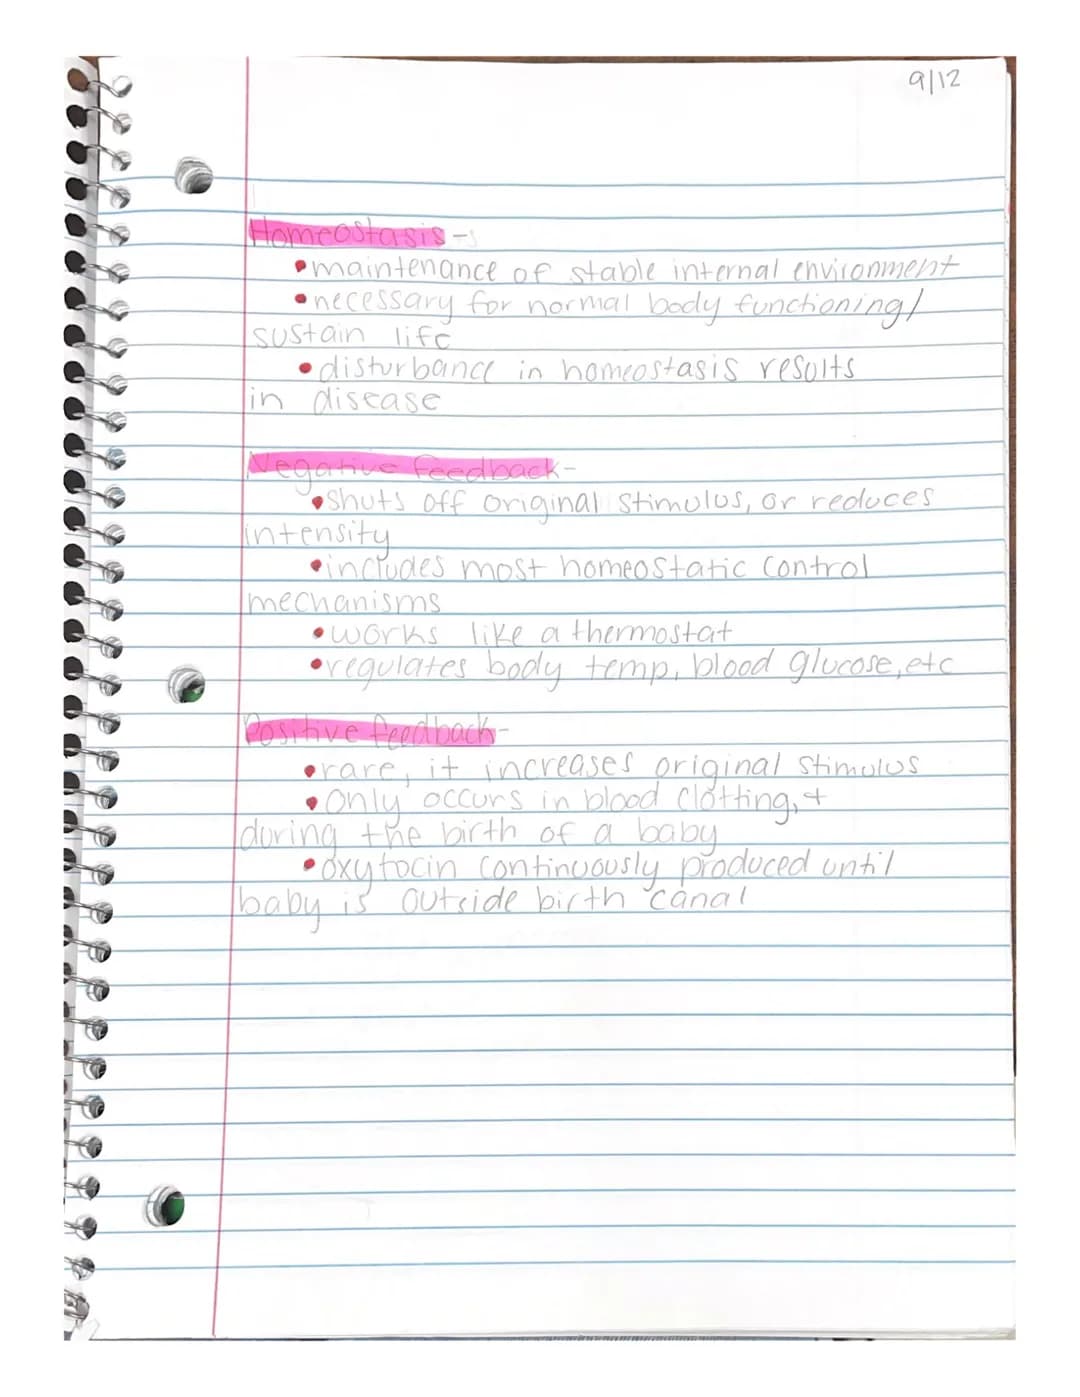 9/12
Homeostasis -
•maintenance of stable internal environment
•necessary for normal body functioning/
sustain life
•disturbance in homeostasis results
in disease
Negative feedback-
•shuts off original stimulus, or reduces
intensity
•includes most homeostatic control
mechanisms
•works like a thermostat
•regulates body temp, blood glucose, etc
Positive feedback-
•rare, it increases original stimulus
•only occurs in blood clotting, +
during the birth of a baby
•oxytocin continuously produced until
baby is outside birth canal